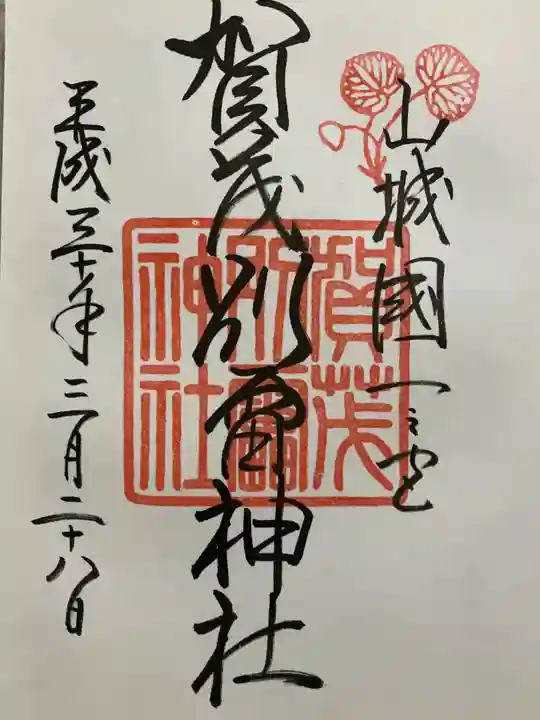 山城國一之宮
賀茂別雷神社
賀茂
別雷
神社
平成三十年三月二十八日